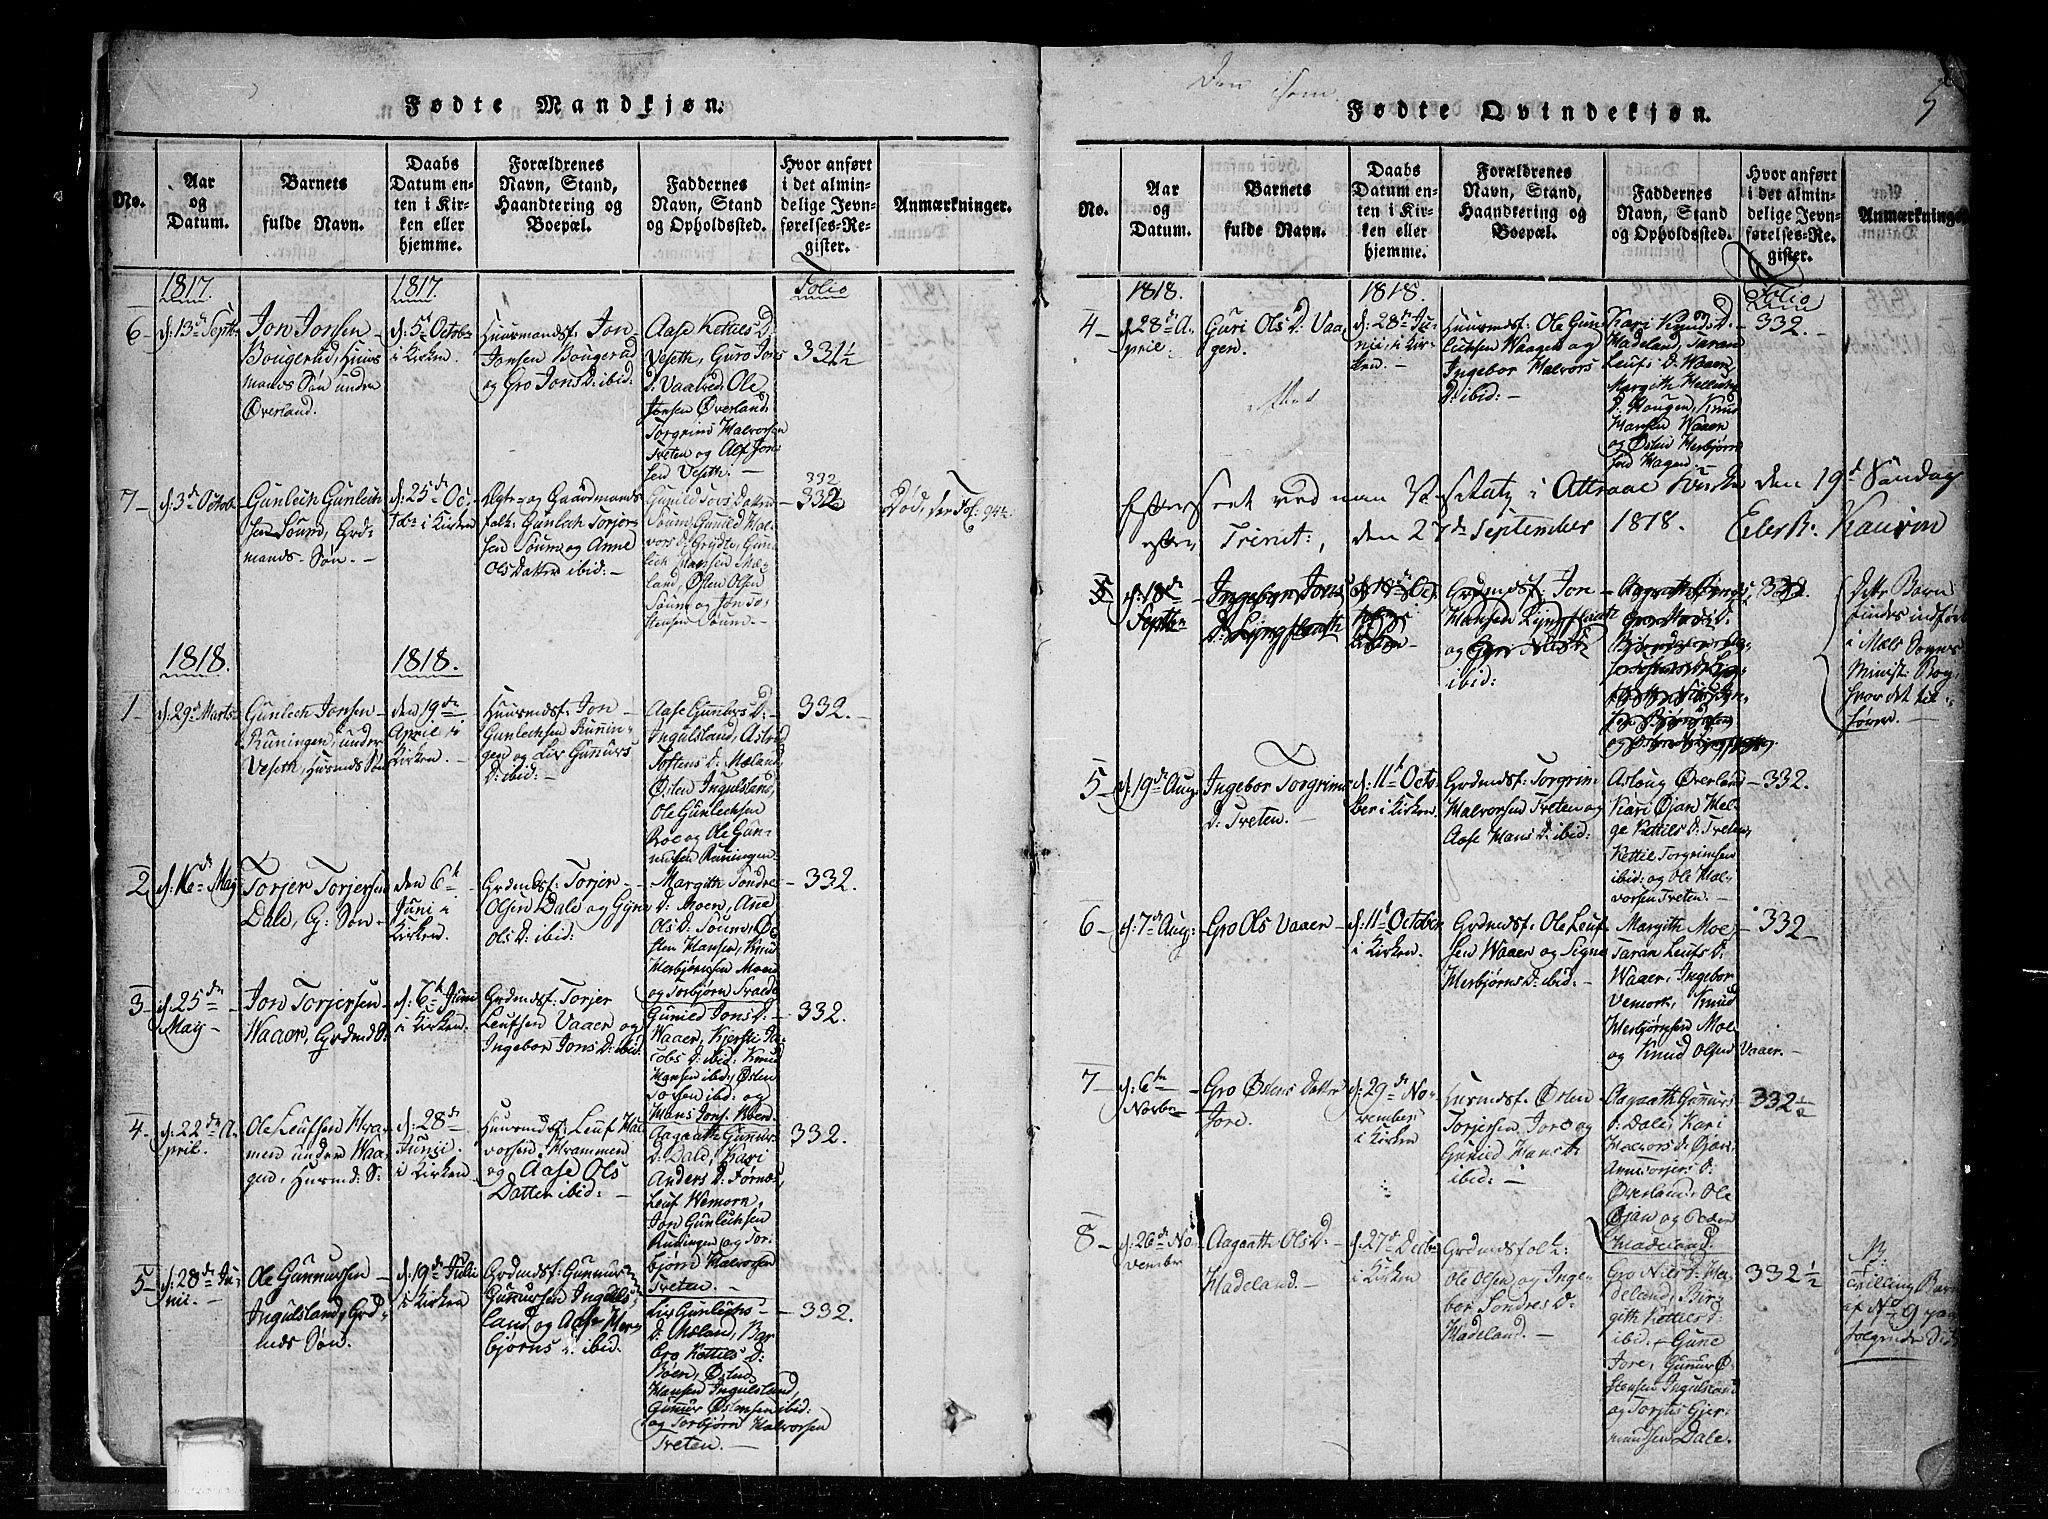 Fødte Mandkjøn.
No.
Aar
og
Datum.
Barnets
fulde Navn.
Daabs
Datum en-
ten i Kir-
ken eller
hjemme.
Forældrenes
Navn, Stand,
Haandtering og
Boepæl.
Faddernes
Navn, Stand
og Opholdssted.
Hvor anført
i det almin-
delige Jevn-
førelses-Re-
gister.
Anmærkninger.
1817.
1817.
Folio
6
d: 13de Septbr
Jon Jonsen
Bougerud, Huus
mands Søn under
Øverland.
d: 5te Octobr
i Kirken.
Huusmandsf. Jon
Jonsen Bougerud
og Gro Jons D: ibid:
Aase Kettils D:
Veseth, Guro Jons
D: Vaalred, Ole
Jonsen Øverland,
Torgrims Halvorsen
Tveten og Alf Jon-
sen Veseth.
331½
7
d: 3de Octob
Gunleich Gunleich
sen Soum, Grd-
mands-Søn.
d: 25de Oc-
tobr i Kirken
Gaardmands
folk: Gunlech Torjer-
sen Soum og Anne
Ols Datter ibid:
Gunild Tovs Datter
Soum, Gunild Hal-
vors D: Grydte, Gun-
lech Hansen Mæ-
land, Østen Olsen
Soum og Jon To-
stensen Soum.
332
332
Død, see Fol: 94
1818.
1818.
1
d: 29de Marts
Gunlech Jonsen
Runingen, under
Veseth, Husmds Søn
den 19de
April i
Kirken.
Huusmdsf: Jon
Gunlechsen Runin-
gen og Liv Gunnurs
D: ibid:
Aase Gunners D:
Ingulsland, Astrid
Toftens D: Mæland
Østen Ingulsland,
Ole Gunlechsen
Roe og Ole Gun-
nulsen Runingen
332.
2
d: 16de May
Torjer Torjersen
Dale, G: Søn
den 6te
Juni i
Kirken.
Grdmdsf: Torjer
Olsen Dale og Gyro
Ols D: ibid:
Margith Sondre
D: Moen, Ane
Ols D: Soum, Ø-
sten Hansen, Knud
Herbjørnsen Moen
og Torbjørn Svalde
332.
3
d: 25de
May
Jon Torjersen
Waaer, Grdmd S:
d: 6te Juni
i Kirken.
Grdmdsf: Torjer
Leufsen Vaaer og
Ingebor Jons D: ibid
Gunild Jons D:
Waaer, Kjersti Ja-
cobs D: ibid: Knud
Hansen ibid, Østen
Torsen ibid: og
Hans Jons. Boen
332.
4
d: 22de A-
pril.
Ole Leufsen Kra-
men under Waa-
gen, Husmd: S:
d: 28de
Junii
i Kirken
Huusmdsf: Leuf Hal-
vorsen Krammen
og Aase Ols
Datter ibid:
Aagaath Gunnurs
D: Dale, Kari
Anders D: Førnes
Leuf Wemorn,
Jon Gunlechsen
Runingen og Tor-
bjørn Halvorsen
Tveten.
332.
5
d: 28de Ju-
nii.
Ole Gunnursen
Ingulsland, Grd-
mds Søn.
d: 19de Julii
i Kirken
Grdmdsf: Gunnur
Gunnursen Inguls-
land og Aase Her-
bjørns D: ibid.
Liv Gunlechs
D: Mæland, Bar-
bro Kettils D:
Bøen, Østen
Hansen Ingulsland,
Gunnur Østensen ibid:
og Torbjørn Halvorsen
Tveten.
332.
Fødte Qvindekjøn.
5
No.
Aar
og
Datum.
Barnets
fulde Navn.
Daabs
Datum en-
ten i Kir-
ken eller
hjemme.
Forældrenes
Navn, Stand,
Haandtering og
Boepæl.
Faddernes
Navn, Stand
og Opholdssted.
Hvor anført
i det almin-
delige Jevn-
førelses-Re-
gister.
Anmærkninger
1818.
1818.
Folio
4
d: 28de A-
pril.
Guri Ols D: Vaa-
gen.
d: 28de Ju-
nii, i Kir-
ken.
Huusmdsf: Ole Gun-
lechsen Waagen og
Ingebor Halvors
D: ibid:
Kari Knuds D:
Hadeland, Taran
Leufs D: Waaer,
Margith
D: Haugen, Knud
Hansen Waaer
og Østen Herbjørn
sen Hagen
332.
Efterseet ved min Visitatz i Attraae Kirke den 19de Søndag
efter Trinit:, den 27de September 1818. Eiler R: Kaurin
5
d: 18de
Septbr
Ingebor Jons
D: Lyngflaath
d: 18de Oc
Kirken
Grdmdsf: Jon
Hansen Lyngflaath
og Guri Nils D:
ibid:
332
Dette Barn
findes indført
i Mæls Sogns
Minist: Bog
hvor det til-
hører.
5
d: 19de Aug:
Ingebor Torgrims
D: Tveten.
d: 11te Octo-
ber i Kirken.
Grdmdsf: Torgrim
Halvorsen Tveten og
Aase Hans D: ibid:
Aslaug Øverland
Kari Øjan, Hel-
ge Kettils D: Tveten,
Kettil Torgrimsen
ibid: og Ole Hal-
vorsen Tveten.
332.
6
d: 7de Aug:
Gro Ols Vaaer
d: 11te October
i Kirken.
Grdmdsf: Ole Leuf-
sen Waaer og Signe
Herbjørns D: ibid:
Margith Moe
Taran Leufs D:
Waaer, Ingebor
Vemork, Knud
Herbjørnsen Moe
og Knud Olsen Vaaer.
332
7
d: 6te
Novbr
Gro Østens Datter
Jore.
d: 29de No-
vember
i Kirken
Husmdsf: Østen
Torjersen, Jore og
Gunild Hans D:
ibid:
Aagaath Gunnurs
D: Dale, Kari
Halvors D: Øjan,
Anne Torjers D:
Øverland, Ole
Øjan og Peder
Hadeland.
332½
8
d: 26de No-
vembr
Aagaath Ols D:
Hadeland.
d: 27de Decbr
i Kirken
Grdmdsfolk:
Ole Olsen og Inge-
bor Sondres D:
Hadeland.
Gro Nils D: Ha-
deland, Bir-
gith Kettils D:
ibid: Gune
Jore, Gunnur Ø-
stensen Ingulsland
og Torstes Gjer-
mundsen Dale.
332½
Tvilling Barn
af No 9 paa
følgende Side